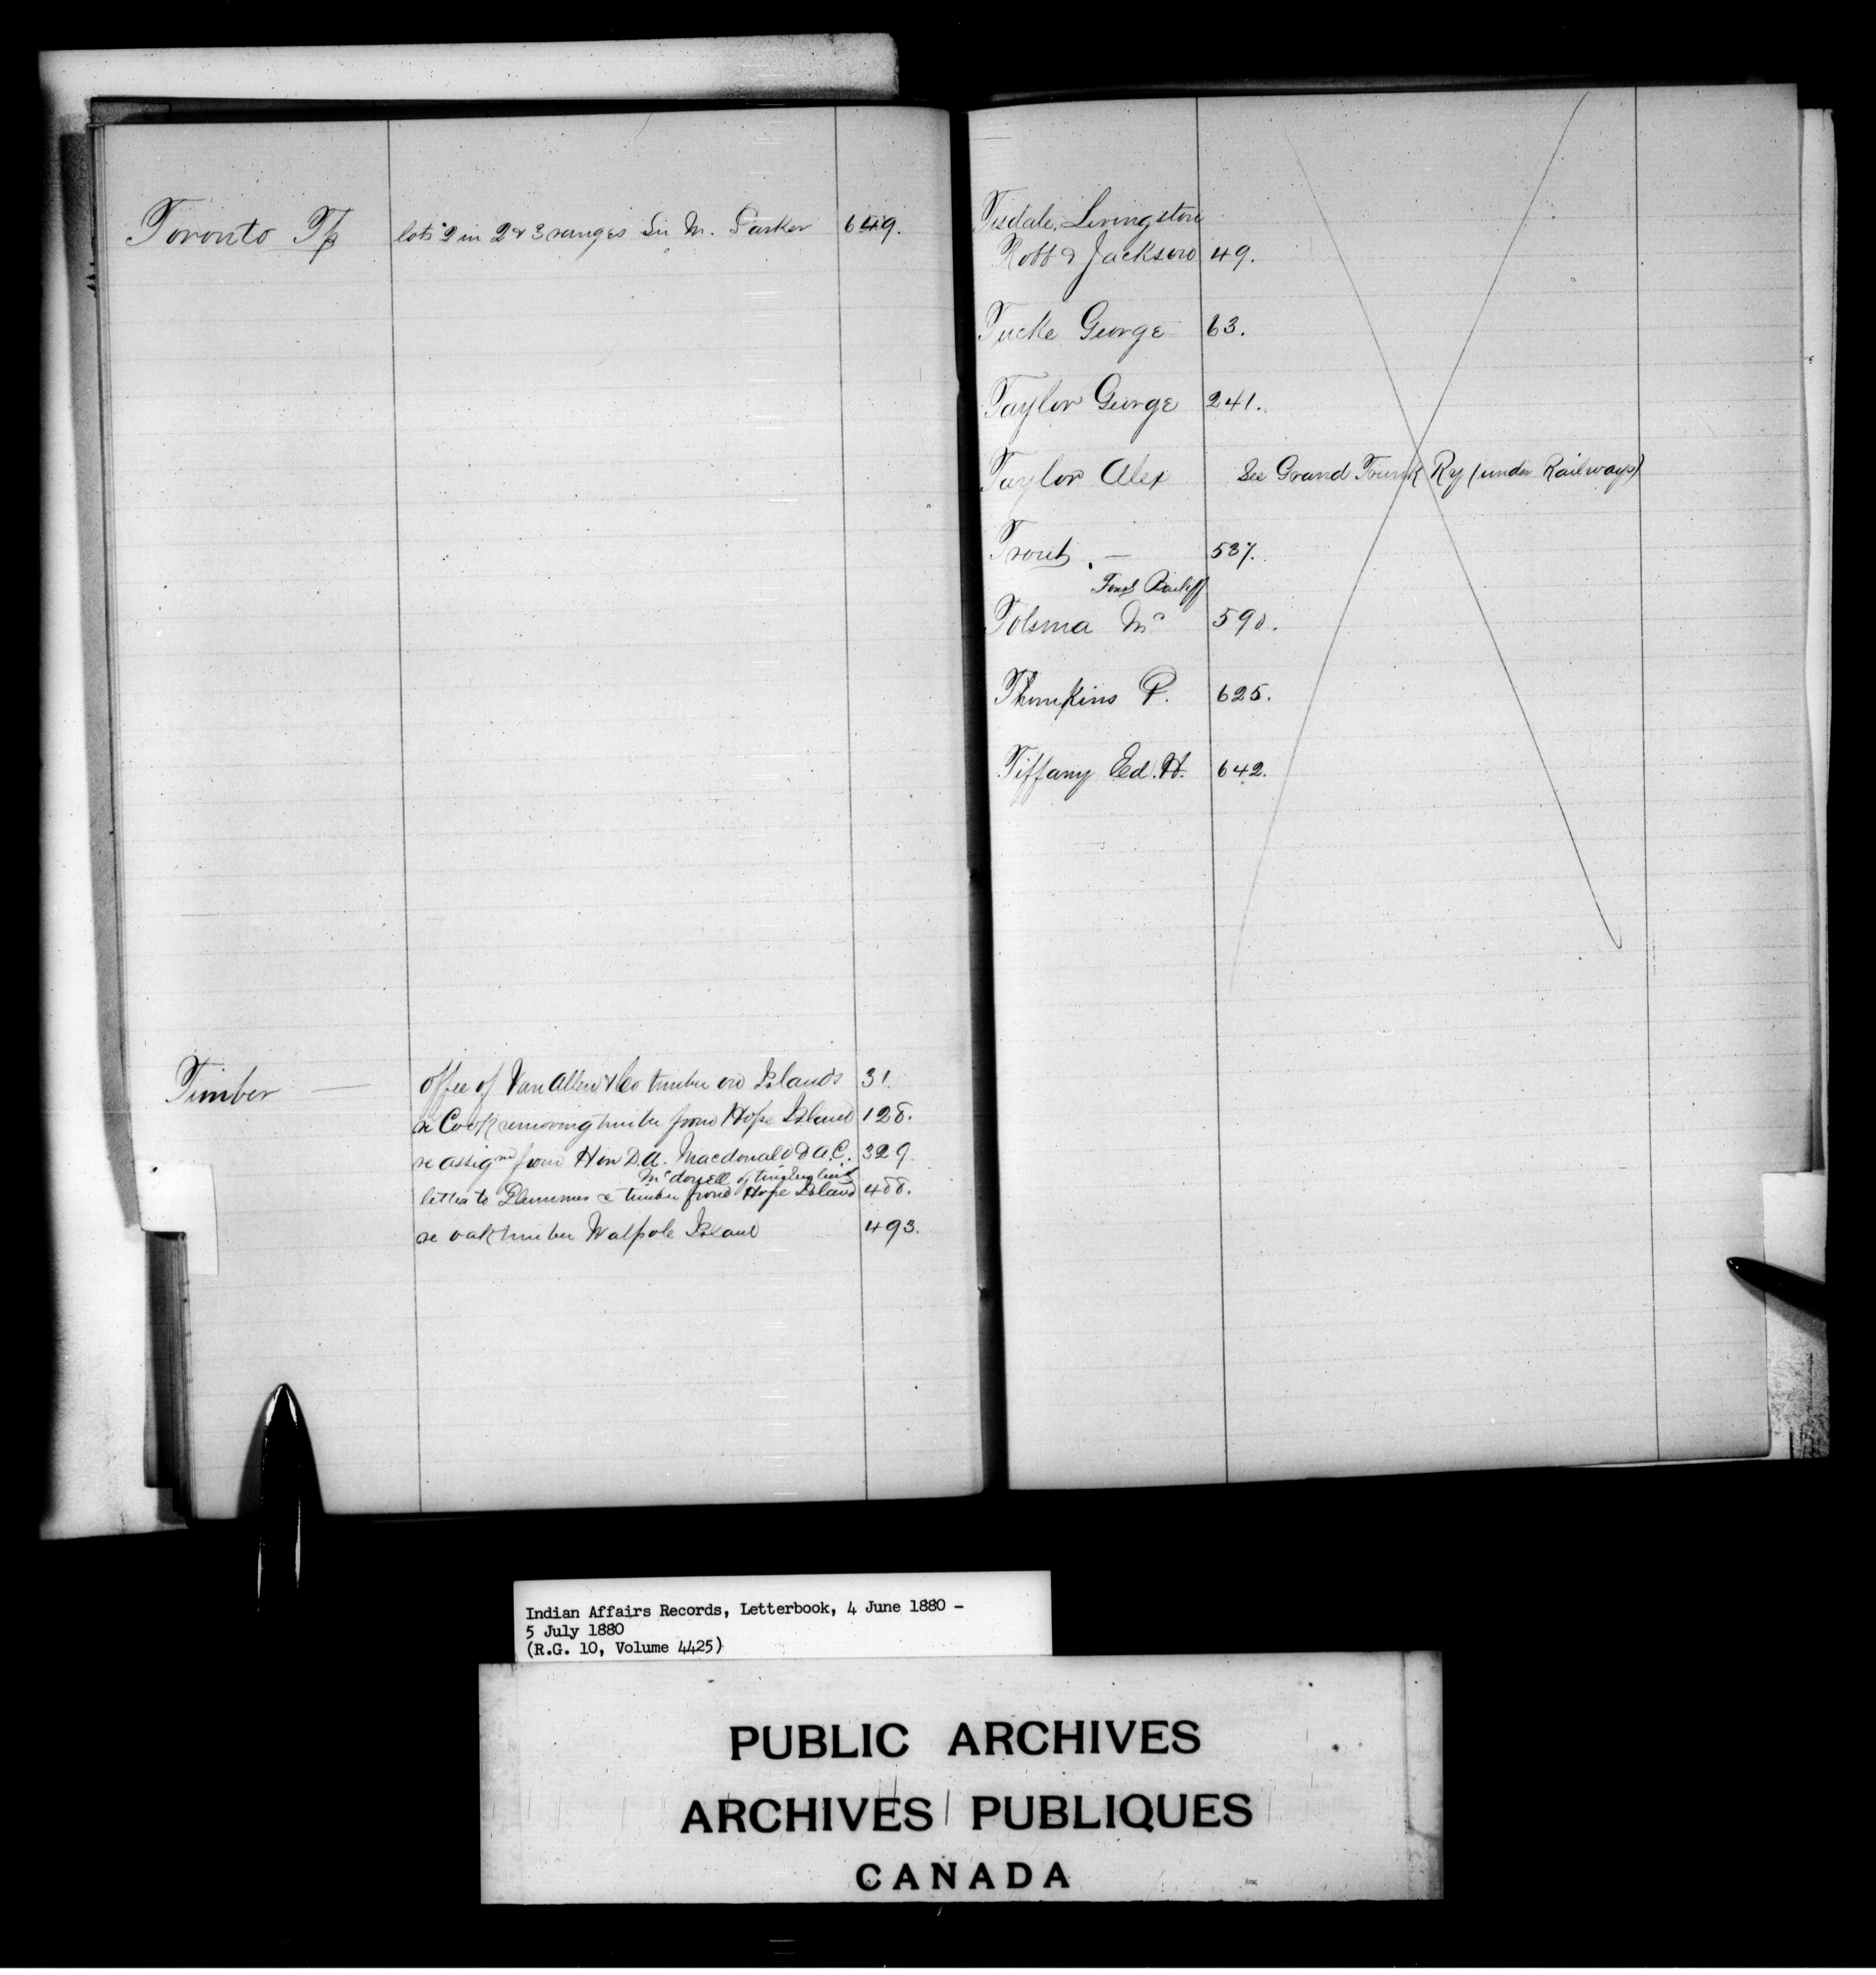 Toronto Tp lots 2 in 2 & 3 ranges Sir M. Parker 649.
Timber — offer of Van Allen & Co timber on Islands 31.
re Cook removing timber from Hope Island 128.
re assignt from Hon D.A. Macdonald to A.C. 329
McDonell of timber limit
letter to Plummer re timber from Hope Island 488.
re oak timber Walpole Island 493.
Tisdale, Livingston
Robb & Jackson 49.
Tucke George 63.
Taylor George 241.
Taylor Alex See Grand Trunk Ry (under Railways)
Trout — 537.
Bailiff
Tolsma Mr 590.
Thomkins P. 625.
Tiffany Ed. H. 642.
Indian Affairs Records, Letterbook, 4 June 1880 –
5 July 1880
(R.G. 10, Volume 4425)
PUBLIC ARCHIVES
ARCHIVES PUBLIQUES
CANADA